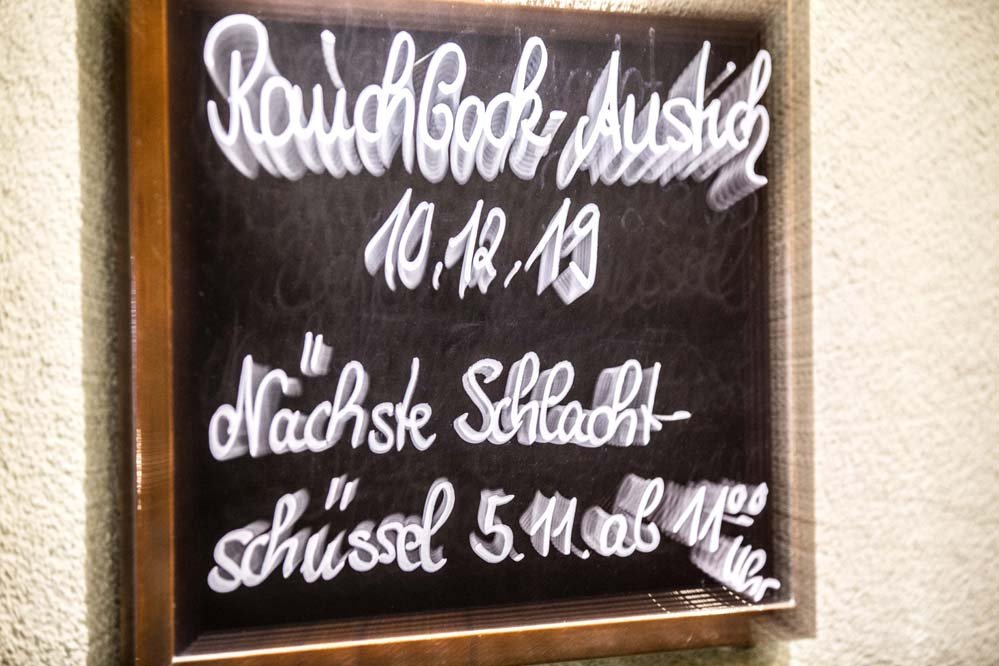 Rauchbock-Austich
10.12.19
Nächste Schlacht-
schüssel 5.11. ab 11⁰⁰
Uhr